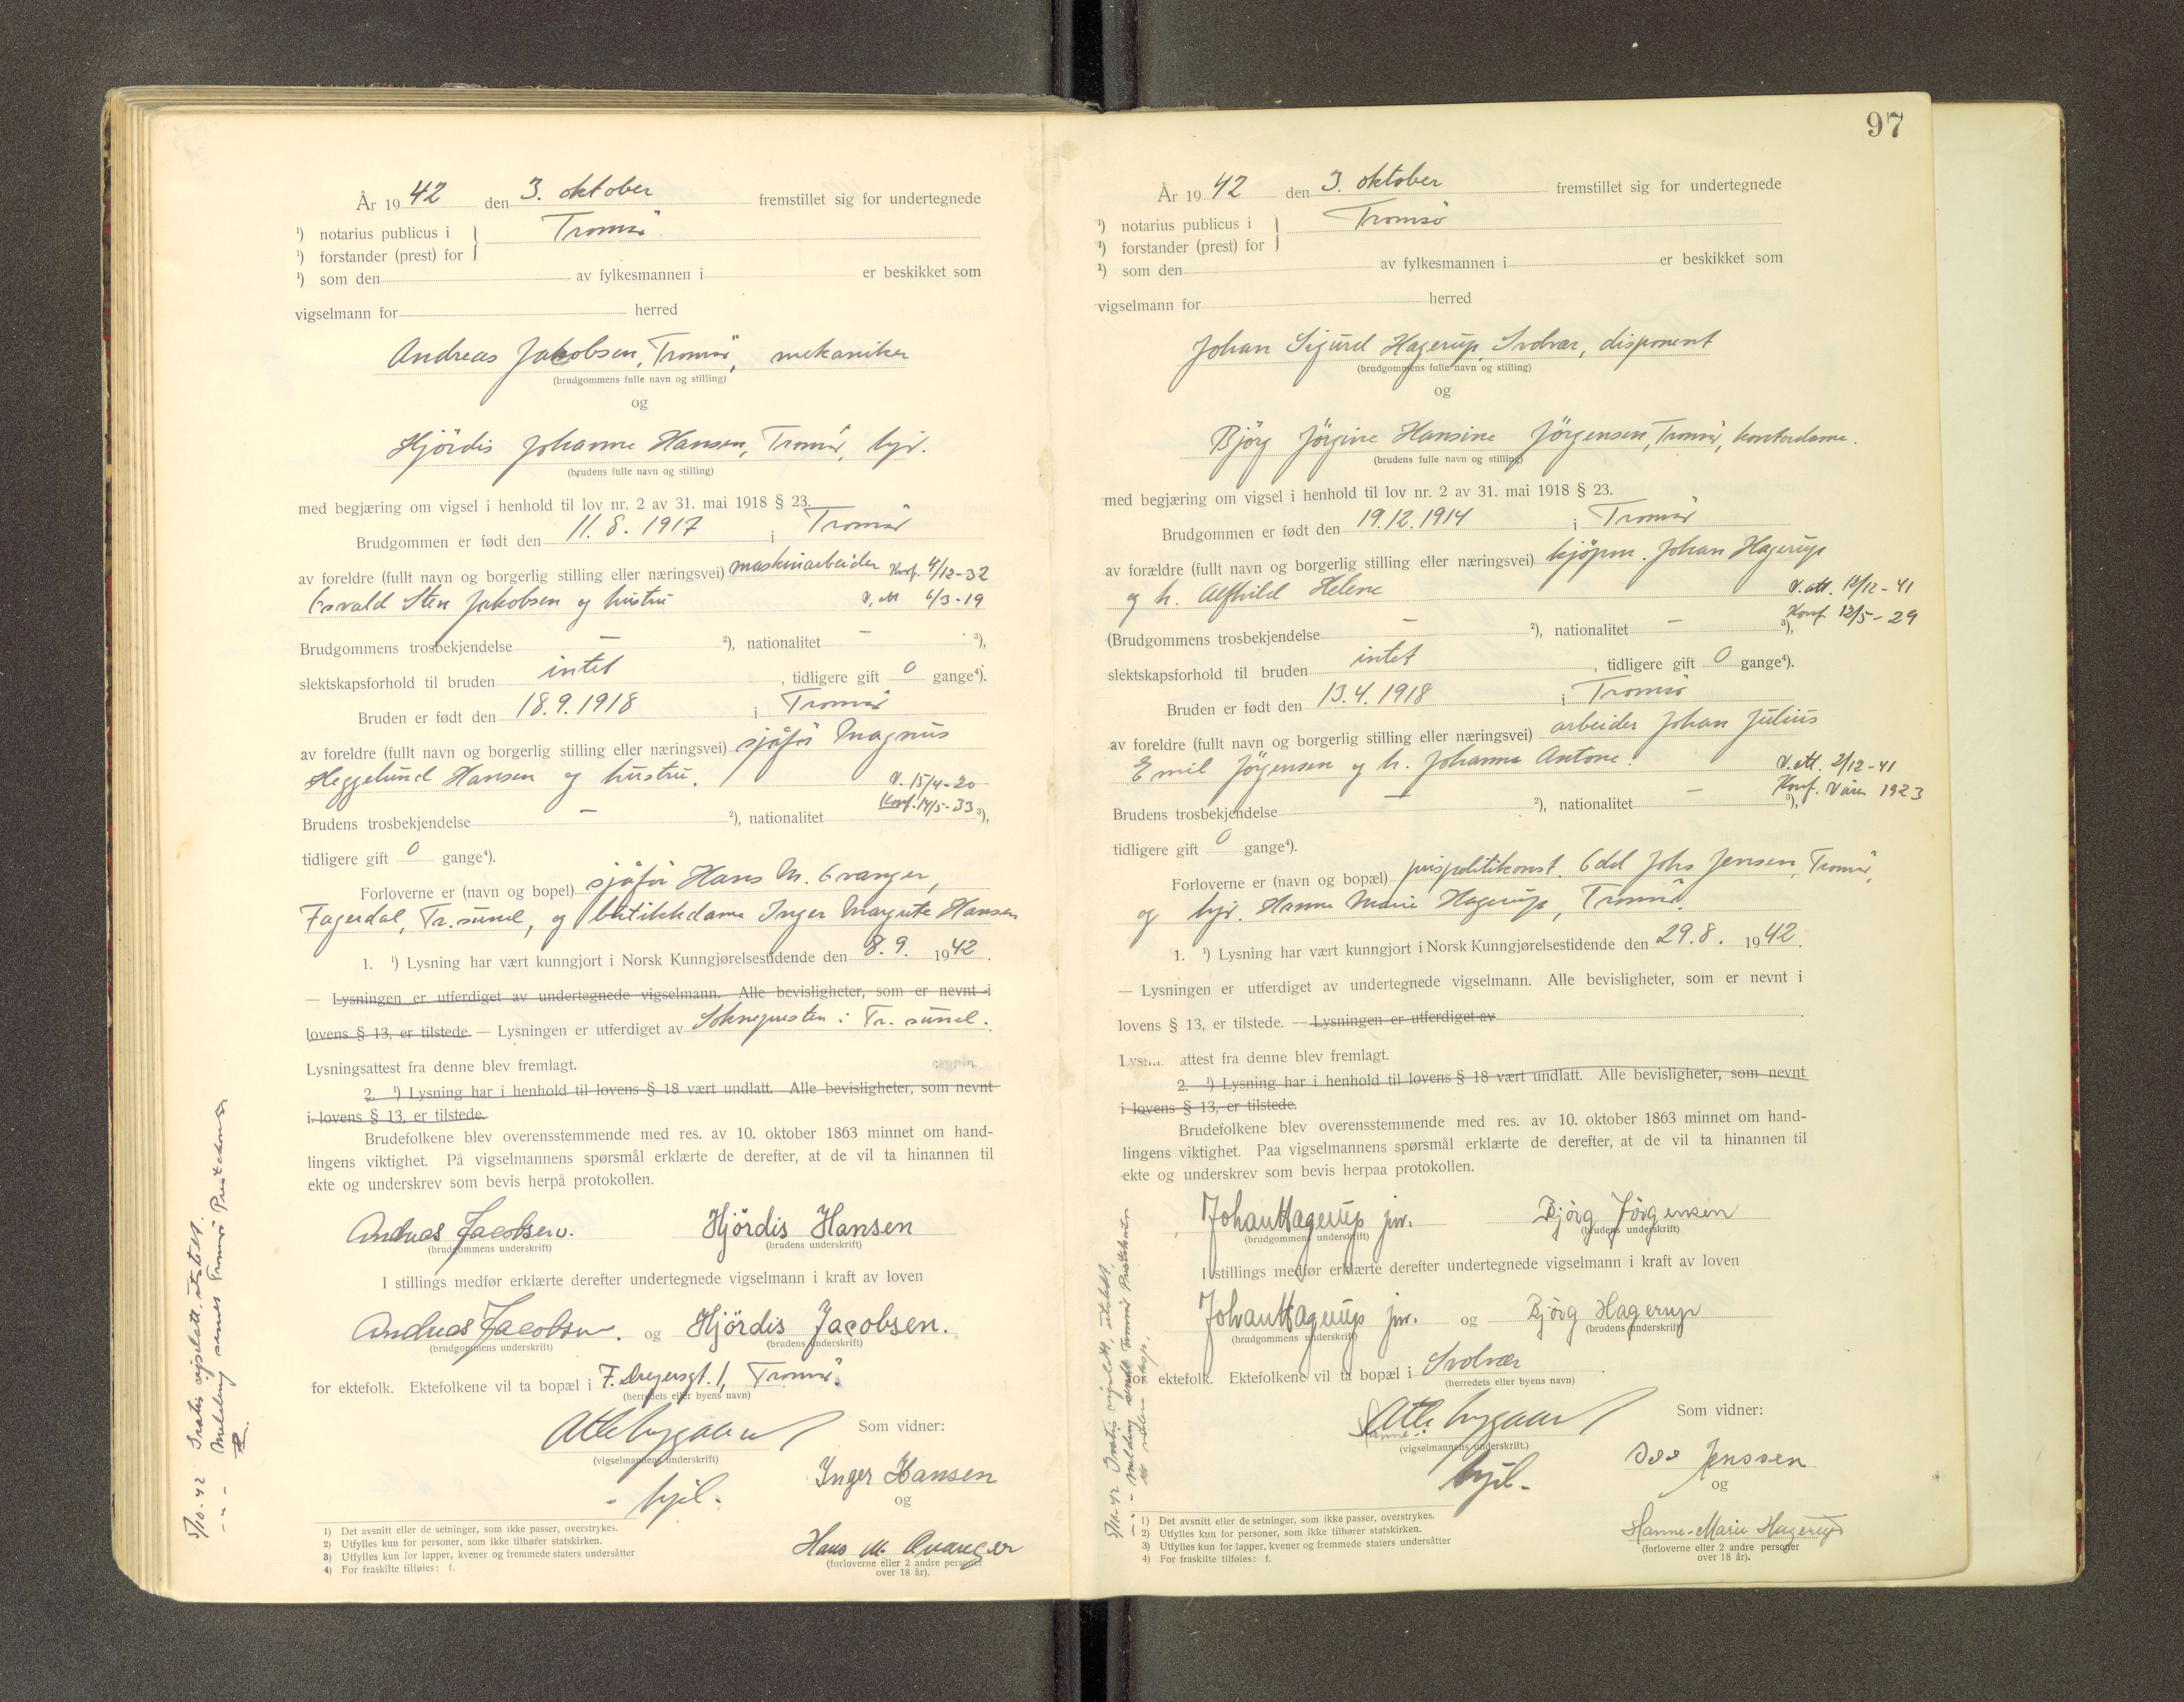 År 1942 den 3. oktober fremstillet sig for undertegnede
¹) notarius publicus i } Tromsö.
¹) forstander (prest) for
¹) som den av fylkesmannen i er beskikket som
vigselmann for herred
Andreas Jakobsen, Tromsö, mekaniker
(brudgommens fulle navn og stilling)
og
Hjördis Johanne Hansen, Tromsö, hjv.
(brudens fulle navn og stilling)
med begjæring om vigsel i henhold til lov nr. 2 av 31. mai 1918 § 23.
Brudgommen er født den 11.8.1917 i Tromsö
av foreldre (fullt navn og borgerlig stilling eller næringsvei) maskinarbeider Konf. 4/12-32
Osvald Sten Jakobsen og hustru V. att 6/3-19
Brudgommens trosbekjendelse — ²), nationalitet — ³),
slektskapsforhold til bruden intet, tidligere gift 0 gange⁴).
Bruden er født den 18.9.1918 i Tromsö
av foreldre (fullt navn og borgerlig stilling eller næringsvei) sjåför Magnus
Heggelund Hansen og hustru. V. 15/4-20
Konf. 14/5-33
Brudens trosbekjendelse — ²), nationalitet ³),
tidligere gift 0 gange⁴).
Forloverne er (navn og bopel) sjåför Hans M. Evanger,
Fagerdal, Tr.sund, og butikkdame Inger Margrete Hansen
1. ¹) Lysning har vært kunngjort i Norsk Kunngjørelsestidende den 8.9. 1942.
— Lysningen er utferdiget av undertegnede vigselmann. Alle bevisligheter, som er nevnt i
lovens § 13, er tilstede. — Lysningen er utferdiget av Soknepresten i Tr. sund.
Lysningsattest fra denne blev fremlagt.
2. ¹) Lysning har i henhold til lovens § 18 vært undlatt. Alle bevisligheter, som nevnt
i lovens § 13, er tilstede.
Brudefolkene blev overensstemmende med res. av 10. oktober 1863 minnet om hand-
lingens viktighet. På vigselmannens spørsmål erklærte de derefter, at de vil ta hinannen til
ekte og underskrev som bevis herpå protokollen.
Andreas Jacobsen. Hjördis Hansen
(brudgommens underskrift) (brudens underskrift)
I stillings medfør erklærte derefter undertegnede vigselmann i kraft av loven
Andreas Jacobsen. og Hjördis Jacobsen.
(brudgommens underskrift) (brudens underskrift)
for ektefolk. Ektefolkene vil ta bopæl i F. Dreyersgt. 1, Tromsö.
(herredets eller byens navn)
(vigselmannens underskrift) Som vidner:
Inger Hansen
og
Hans M. Evanger
(forloverne eller 2 andre personer
over 18 år).
1) Det avsnitt eller de setninger, som ikke passer, overstrykes.
2) Utfylles kun for personer, som ikke tilhører statskirken.
3) Utfylles kun for lapper, kvener og fremmede staters undersåtter
4) For fraskilte tilføies: f.
5/10-42 Gratis vigselatt. utstedt.
-"- Melding sendt Tromsö Prestekontor.
97
År 1942 den 3. oktober fremstillet sig for undertegnede
¹) notarius publicus i } Tromsö
¹) forstander (prest) for
¹) som den av fylkesmannen i er beskikket som
vigselmann for herred
Johan Sigurd Hagerup, Svolvær, disponent
(brudgommens fulle navn og stilling)
og
Björg Jörgine Hansine Jörgensen, Tromsö, kontordame.
(brudens fulle navn og stilling)
med begjæring om vigsel i henhold til lov nr. 2 av 31. mai 1918 § 23.
Brudgommen er født den 19.12.1914 i Tromsö
av forældre (fullt navn og borgerlig stilling eller næringsvei) kjöpm. Johan Hagerup
og h. Alfhild Helene V. att. 12/12-41
Konf 12/5-29
(Brudgommens trosbekjendelse — ²), nationalitet — ³),
slektskapsforhold til bruden intet, tidligere gift 0 gange⁴).
Bruden er født den 13.4.1918 i Tromsö
av foreldre (fullt navn og borgerlig stilling eller næringsvei) arbeider Johan Julius
Emil Jörgensen og h. Johanna Antone. V. att. 2/12-41
Konf. Våren 1923
Brudens trosbekjendelse — ²), nationalitet — ³),
tidligere gift 0 gange⁴).
Forloverne er (navn og bopæl) prispolitikonst. Odd Johs Jensen, Tromsö,
og hjv. Hanna Marie Hagerup, Tromsö.
1. ¹) Lysning har vært kunngjort i Norsk Kunngjørelsestidende den 29.8. 1942.
— Lysningen er utferdiget av undertegnede vigselmann. Alle bevisligheter, som er nevnt i
lovens § 13, er tilstede. — Lysningen er utferdiget av
attest fra denne blev fremlagt.
2. ¹) Lysning har i henhold til lovens § 18 vært undlatt. Alle bevisligheter, som nevnt
i lovens § 13, er tilstede.
Brudefolkene blev overensstemmende med res. av 10. oktober 1863 minnet om hand-
lingens viktighet. Paa vigselmannens spørsmål erklærte de derefter, at de vil ta hinannen til
ekte og underskrev som bevis herpaa protokollen.
Johan Hagerup jnr. Björg Jörgensen
(brudgommens underskrift) (brudens underskrift)
I stillings medfør erklærte derefter undertegnede vigselmann i kraft av loven
Johan Hagerup jnr. og Björg Hagerup
(brudgommens underskrift) (brudens underskrift)
for ektefolk. Ektefolkene vil ta bopæl i Svolvær
(herredets eller byens navn)
(vigselmannens underskrift.) Som vidner:
Jenssen
og
Hanne-Marie Hagerup
(forloverne eller 2 andre personer
over 18 år).
1) Det avsnitt eller de setninger, som ikke passer, overstrykes.
2) Utfylles kun for personer, som ikke tilhører statskirken.
3) Utfylles kun for lapper, kvener og fremmede staters undersåtter
4) For fraskilte tilføies: f.
5/10-42 Gratis vigselatt. utstedt.
-"- Melding sendt Tromsö Prestekontor